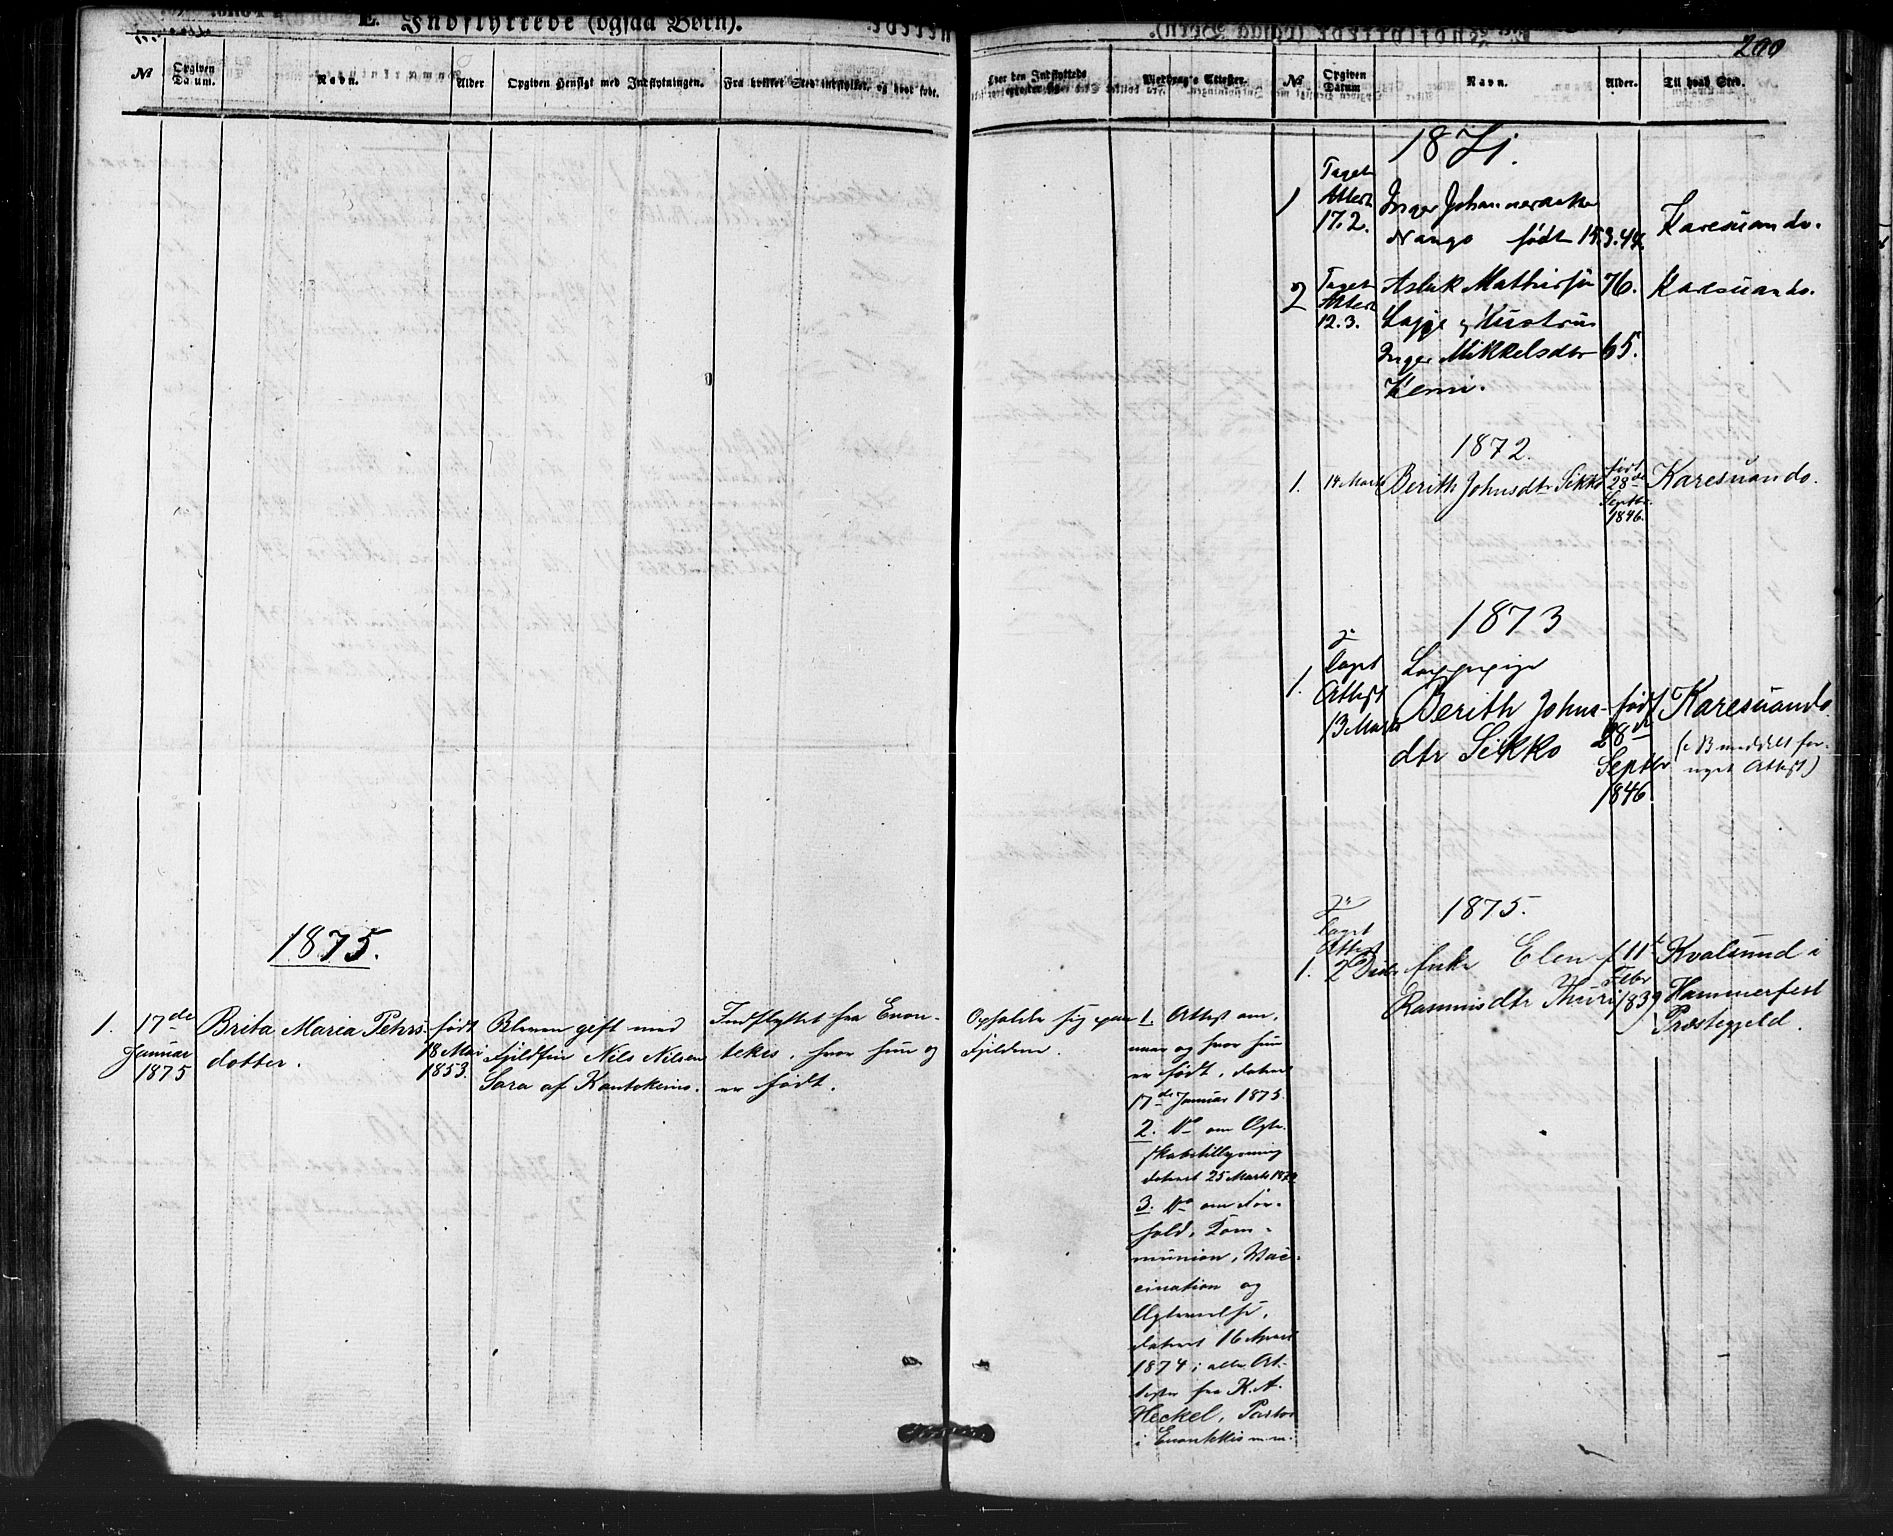 E. Indflyttede (ogsaa Børn).
200
No
Opgiven Datum.
Navn.
Alder
Opgiven Hensigt med Indflytningen.
Fra hvilket Sted indflyttet, og hvor født.
hvor den Indflyttede opholder sig.
Medbragte Attester.
No
Opgiven Datum
Navn.
Alder.
Til hvad Sted.
1875.
1.
17de Januar 1875
Brita Maria Pehrs-
dotter.
født
18 Mai
1853.
Bleven gift med
Fjeldfin Nils Nilsen
Sara af Kautokeino.
Indflyttet fra Enon-
tekis, hvor hun og
er født.
Opholder sig paa
Fjeldene.
1. Attest om,
naar og hvor hun
er født, dateret
17de Januar 1875.
2. Do om Ægte-
skabstillysning
dateret 25 Marts
3. Do om For-
hold, Com-
munion, Vac-
cination og
dateret 16 April
1874; alle At-
tester fra K. A.
Heckel, Pastor
i Enontekis m.m.
1871.
1
Taget
Attest
17.2.
Inger
Nango født 15.3.44.
Karesuando.
2
Taget
Attest
12.3.
Aslak Mathisen
76.
Karesuando.
Lappe og Hustru
Inger Mikkelsdtr
65.
Kemi.
1872.
1.
14 Marts
Berith Johnsdtr Sikko
født
28de
Septbr.
1846.
Karesuando.
1873
1.
Taget
Attest
13 Marts
Lappepige
Berith Johns-
dtr Sikko
født
28de
Septbr
1846
Karesuando
(NB meddelt for-
nyet Attest)
1875.
1.
Taget
Attest
2
Enke Elen
Rasmusdtr Thuri
f. 11te
Febr
1839
Kvalsund i
Hammerfest
Præstegjeld.